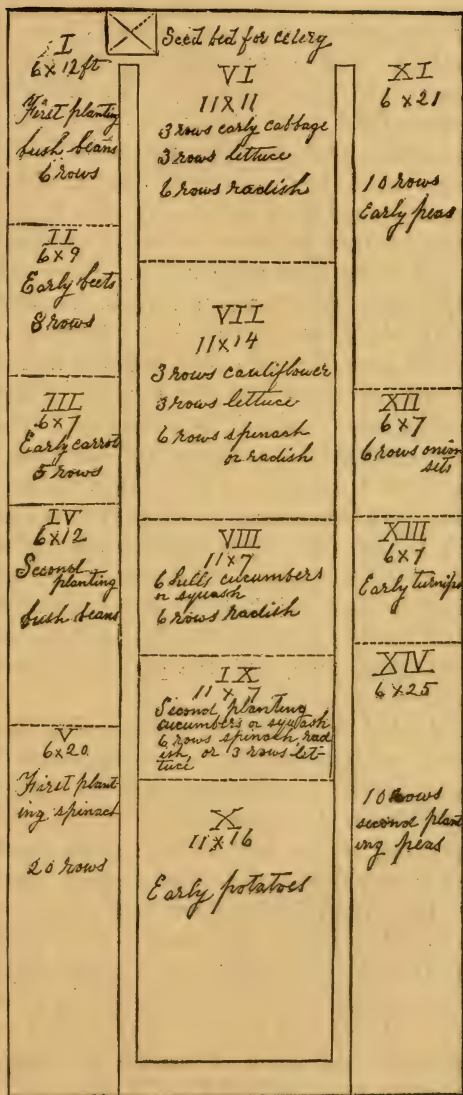 Seed bed for celery
I
6 x 12 ft
First planting
bush beans
6 rows
II
6 x 9
Early beets
8 rows
III
6 x 7
Early carrot
5 rows
IV
6 x 12
Second
planting
bush beans
V
6 x 20
First plant-
ing spinach
20 rows
VI
11 X 11
3 rows early cabbage
3 rows lettuce
6 rows radish
VII
11 x 14
3 rows cauliflower
3 rows lettuce
6 rows spinach
or radish
VIII
11 x 7
6 hills cucumbers
or squash
6 rows radish
IX
11 x 7
Second planting
cucumbers or squash
6 rows spinach rad
ish, or 3 rows let-
tuce
X
11 x 16
Early potatoes
XI
6 x 21
10 rows
Early peas
XII
6 x 7
6 rows onion
sets
XIII
6 x 7
Early turnips
XIV
6 x 25
10 rows
second plant
ing peas